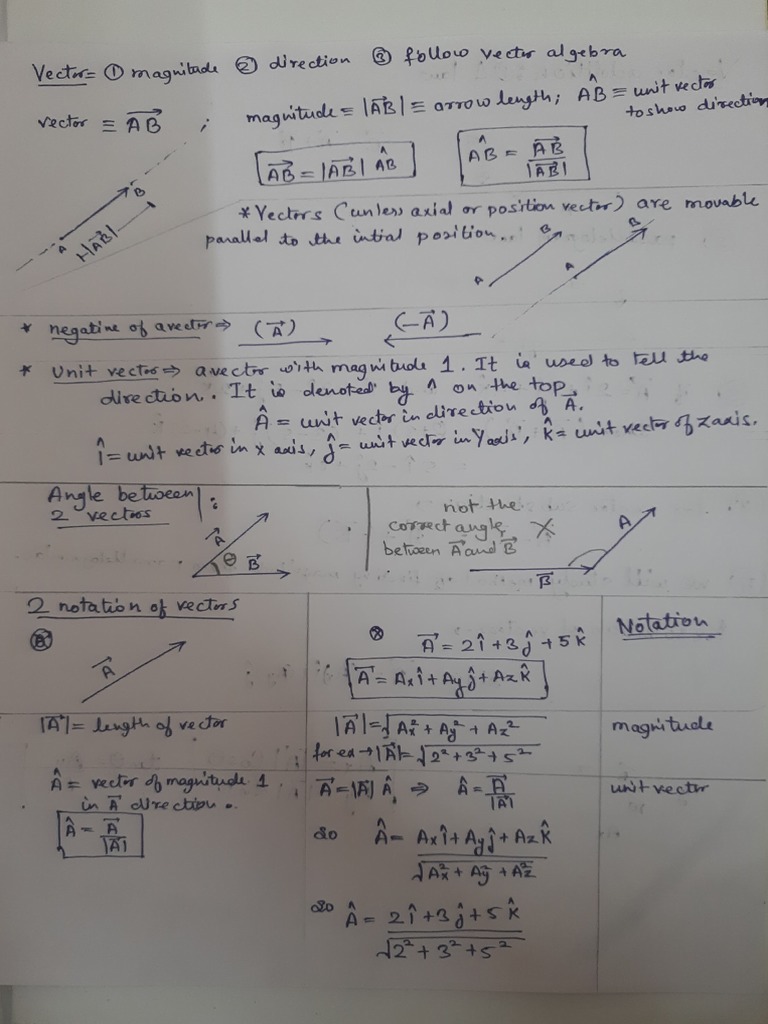 Vector = ① magnitude ② direction ③ follow vector algebra
vector ≡ \vec{AB} ; magnitude ≡ |\vec{AB}| ≡ arrow length; \hat{AB} ≡ unit vector
to show direction
\vec{AB} = |\vec{AB}| \hat{AB}
\hat{AB} = \vec{AB}/|\vec{AB}|
A B
|\vec{AB}|
* Vectors (unless axial or position vector) are movable
parallel to the intial position..
A B A B
* negatine of a vector ⇒ (\vec{A}) (-\vec{A})
* Unit vector ⇒ a vector with magnitude 1. It is used to tell the
direction. It is denoted by ^ on the top.
\hat{A} = unit vector in direction of \vec{A}.
\hat{i} = unit vector in x axis, \hat{j} = unit vector in Y axis, \hat{k} = unit vector of z axis.
Angle between
2 vectors :
\vec{A} θ \vec{B}
not the
correct angle
between \vec{A} and \vec{B} X
A \vec{B}
2 notation of vectors
\vec{A}
⊗ \vec{A} = 2\hat{i} + 3\hat{j} + 5\hat{k}
\vec{A} = Ax\hat{i} + Ay\hat{j} + Az\hat{k}
Notation
|\vec{A}| = length of vector
|\vec{A}| = √(Ax² + Ay² + Az²)
for ex → |\vec{A}| = √(2² + 3² + 5²)
magnitude
\hat{A} = vector of magnitude 1
in \vec{A} direction.
\hat{A} = \vec{A}/|\vec{A}|
\vec{A} = |\vec{A}| \hat{A} ⇒ \hat{A} = \vec{A}/|\vec{A}|
unit vector
so \hat{A} = (Ax\hat{i} + Ay\hat{j} + Az\hat{k})/√(Ax² + Ay² + Az²)
so \hat{A} = (2\hat{i} + 3\hat{j} + 5\hat{k})/√(2² + 3² + 5²)